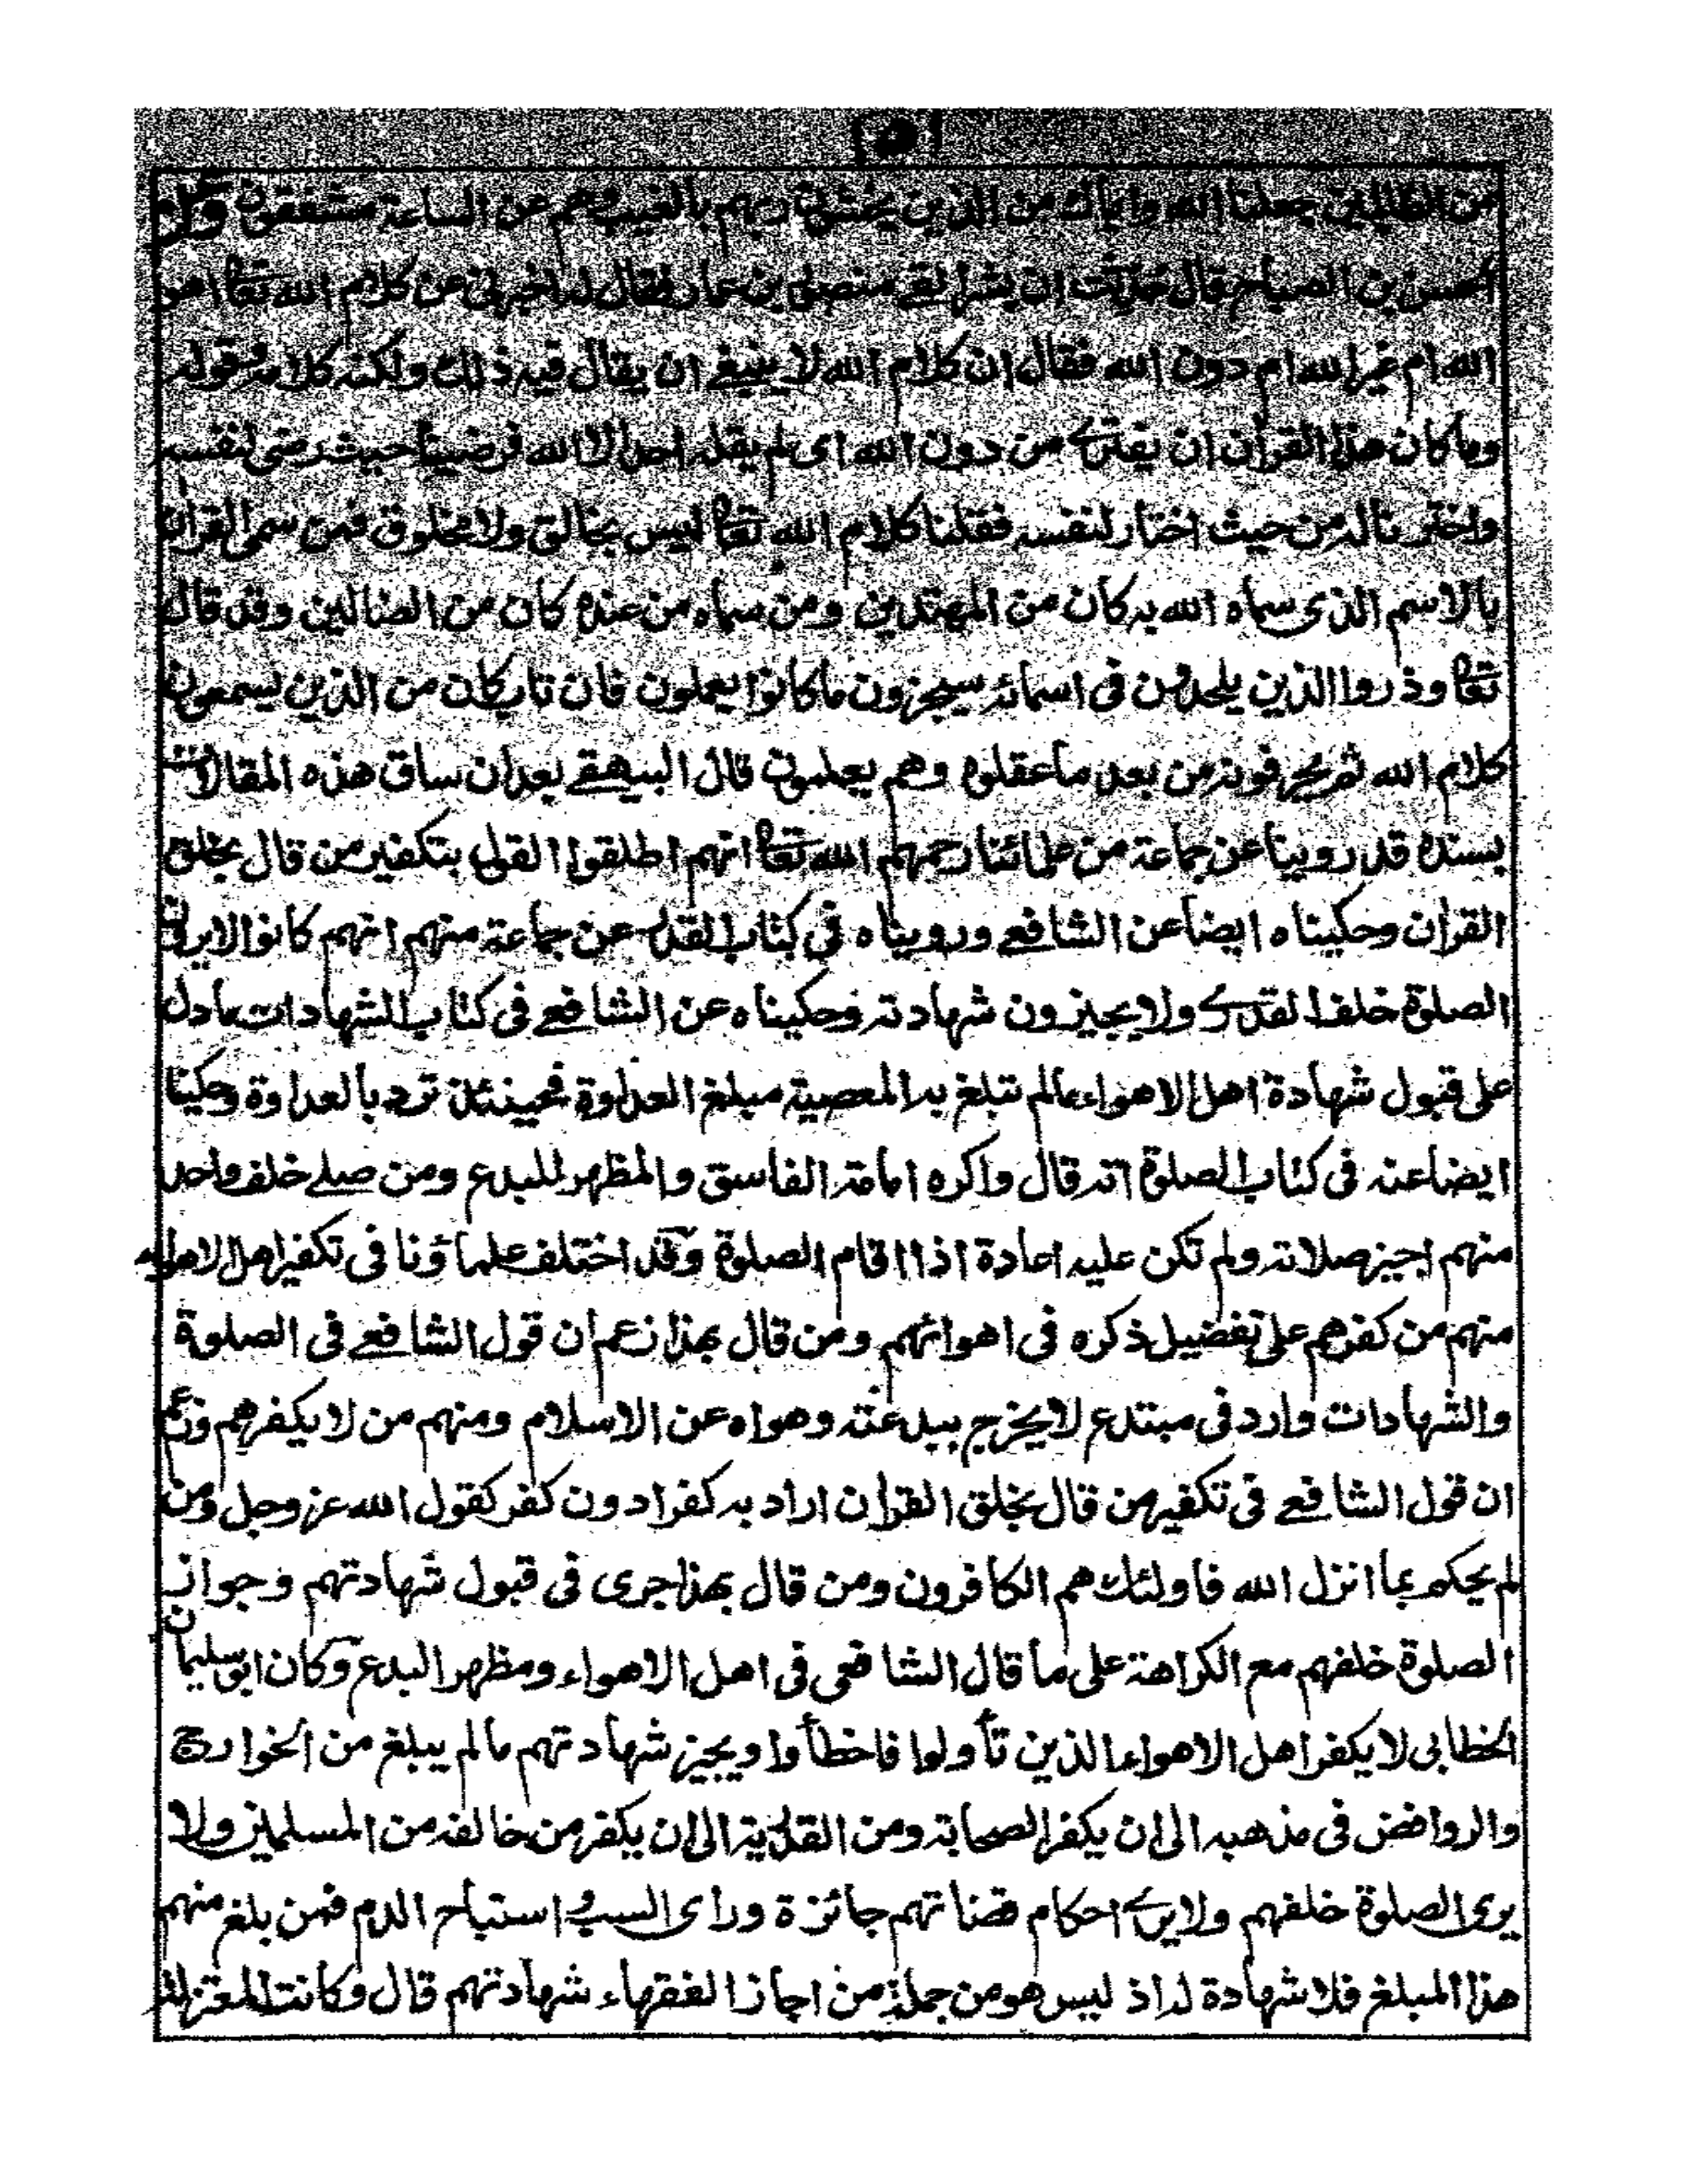 من الظالمين جعلنا الله واياك من الذين يخشون ربهم بالغيب وهم عن الساعة مشفقون وعن
الحسن بن الصباح قال حدثت ان بشرا لقے منصور بن عمار فقال له اخبرنى عن كلام الله تعالى اهو
الله ام غير الله ام دون الله فقال ان كلام الله لا ينبغے ان يقال فيه ذلك ولكنه كلامه وقوله
وما كان هذا القرآن ان يفترے من دون الله اى لم يقله احد الا الله فرضينا حيث رضى لنفسه
واخترنا له من حيث اختار لنفسه فقلنا كلام الله تعالى ليس بخالق ولا مخلوق فمن سمى القرآن
بالاسم الذى سماه الله به كان من المهتدين ومن سماه من عنده كان من الضالين وقد قال
تعالى وذروا الذين يلحدون فى اسمائه سيجزون ما كانوا يعملون فان تاب كان من الذين يسمعون
كلام الله ثم يحرفونه من بعد ما عقلوه وهم يعلمون قال البيهقے بعد ان ساق هذه المقالات
بسنده قد روينا عن جماعة من علمائنا رحمهم الله تعالى انهم اطلقوا القول بتكفير من قال بخلق
القرآن وحكيناه ايضا عن الشافعے ورويناه فى كتاب القدر عن جماعة منهم انهم كانوا لا يرون
الصلوة خلف القدرے ولا يجيزون شهادته وحكيناه عن الشافعے فى كتاب الشهادات ما دل
على قبول شهادة اهل الاهواء مالم تبلغ به المعصية مبلغ العداوة فحينئذ ترد بالعداوة وحكينا
ايضا عنه فى كتاب الصلوة انه قال واكره امامة الفاسق والمظهر للبدع ومن صلے خلف واحد
منهم اجيز صلاته ولم تكن عليه اعادة اذا اقام الصلوة وقد اختلف علماؤنا فى تكفير اهل الاهواء
منهم من كفرهم على تفضيل ذكره فى اهوائهم ومن قال بهذا زعم ان قول الشافعے فى الصلوة
والشهادات وارد فى مبتدع لا يخرج ببدعته وهواه عن الاسلام ومنهم من لا يكفرهم وزعم
ان قول الشافعے فى تكفير من قال بخلق القرآن اراد به كفرا دون كفر كقول الله عز وجل ومن
لم يحكم بما انزل الله فاولئك هم الكافرون ومن قال بهذا جرى فى قبول شهادتهم وجواز
الصلوة خلفهم مع الكراهة على ما قال الشافعى فى اهل الاهواء ومظهر البدع وكان ابو سليمان
الخطابى لا يكفر اهل الاهواء الذين تأولوا فاخطأوا ويجيز شهادتهم مالم يبلغ من الخوارج
والروافض فى مذهبه الى ان يكفر الصحابة ومن القدرية الى ان يكفر من خالفه من المسلمين ولا
يرى الصلوة خلفهم ولا يرے احكام قضاتهم جائزة وراى السيف واستباح الدم فمن بلغ منهم
هذا المبلغ فلا شهادة له اذ ليس هو من جملة من اجاز الفقهاء شهادتهم قال وكانت المعتزلة